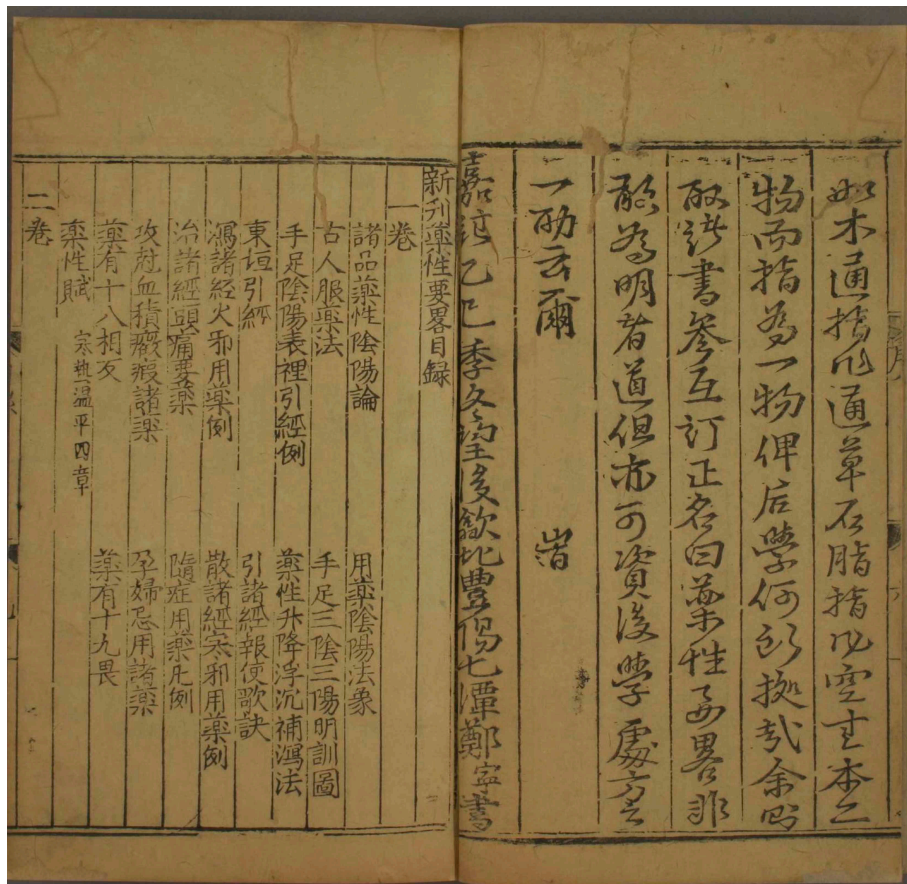 如木通指作通草石脂指作空青本二
物而指為一物俾后學何所據哉余
取諸書叅互訂正名曰藥性要畧非
敢為明者道但亦可資後學處方之
一助云爾
嘉靖乙巳季冬望後歙北豐陽七潭鄭寧書
新刊藥性要畧目録
一卷
諸品藥性陰陽論 用藥陰陽法象
古人服藥法 手足三陰三陽明訓圖
手足陰陽表裡引經例 藥性升降浮沉補瀉法
東垣引經 引諸經報使歌訣
瀉諸經火邪用藥例 散諸經寒邪用藥例
治諸經頭痛要藥 隨症用藥凡例
攻尅血積癥瘕諸藥 孕婦忌用諸藥
藥有十八相反 藥有十九畏
藥性賦 寒熱温平四章
二卷